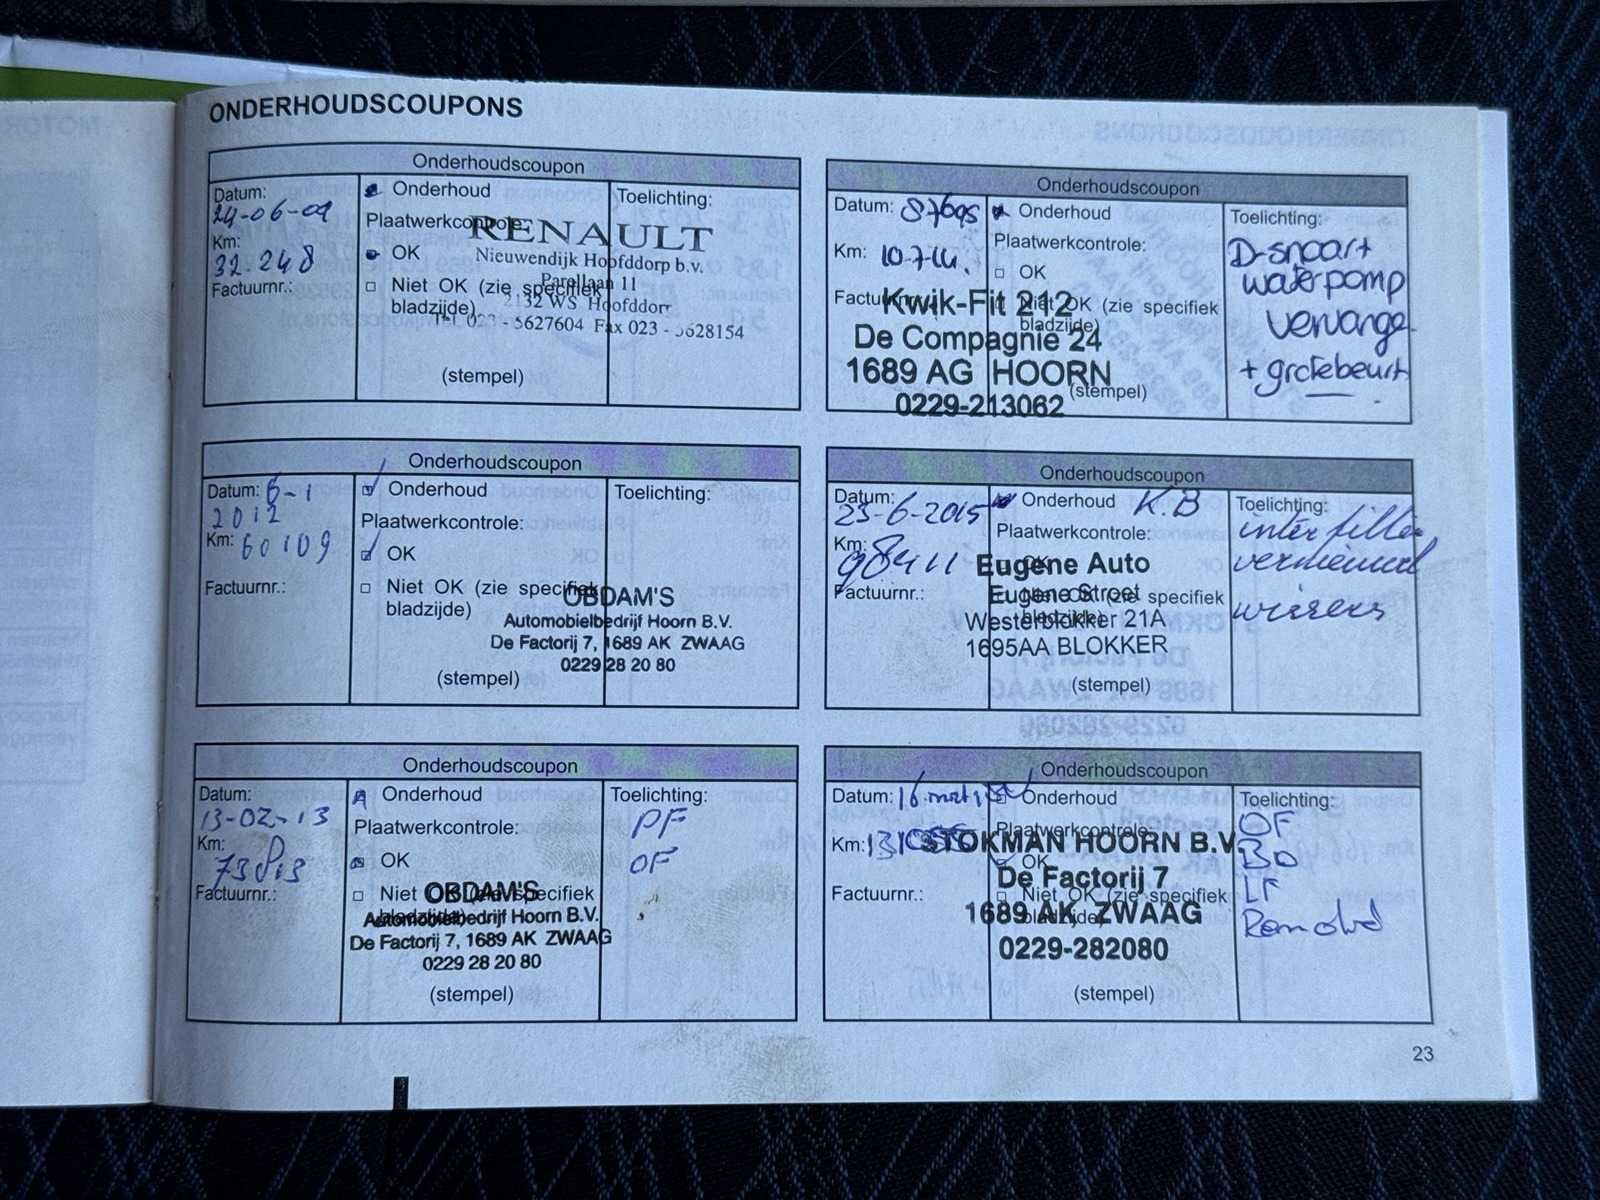 ONDERHOUDSCOUPONS
Onderhoudscoupon
Datum:
24-06-09
Km:
32.248
Factuurnr.:
Onderhoud
Plaatwerkcontrole:
OK
Niet OK (zie specifiek
bladzijde)
RENAULT
Nieuwendijk Hoofddorp b.v.
Parellaan 11
2132 WS Hoofddorp
Tel. 023 - 5627604 Fax 023 - 5628154
(stempel)
Toelichting:
Onderhoudscoupon
Datum: 6-1
2012
Km: 60109
Factuurnr.:
Onderhoud
Plaatwerkcontrole:
OK
Niet OK (zie specifiek
bladzijde)
OBDAM'S
Automobielbedrijf Hoorn B.V.
De Factorij 7, 1689 AK ZWAAG
0229 28 20 80
(stempel)
Toelichting:
Onderhoudscoupon
Datum:
13-02-13
Km:
Factuurnr.:
Onderhoud
Plaatwerkcontrole:
OK
Niet OK (zie specifiek
bladzijde)
OBDAM'S
Automobielbedrijf Hoorn B.V.
De Factorij 7, 1689 AK ZWAAG
0229 28 20 80
(stempel)
Toelichting:
PF
OF
Onderhoudscoupon
Datum: 87695
Km: 10-7-14.
Factuurnr.:
Onderhoud
Plaatwerkcontrole:
OK
Niet OK (zie specifiek
bladzijde)
Kwik-Fit 212
De Compagnie 24
1689 AG HOORN
0229-213062
(stempel)
Toelichting:
D-snaar+
waterpomp
vervange
+ grotebeurt
Onderhoudscoupon
Datum:
23-6-2015
Km:
98411
Factuurnr.:
Onderhoud K.B
Plaatwerkcontrole:
OK
Niet OK (zie specifiek
bladzijde)
Eugene Auto
Eugene Street
Westerblokker 21A
1695AA BLOKKER
(stempel)
Toelichting:
interfilter
vernieuwd
wissers
Onderhoudscoupon
Datum: 16 mrt
Km:
Factuurnr.:
Onderhoud
Plaatwerkcontrole:
OK
Niet OK (zie specifiek
bladzijde)
STOKMAN HOORN B.V.
De Factorij 7
1689 AK ZWAAG
0229-282080
(stempel)
Toelichting:
OF
BO
LF
23